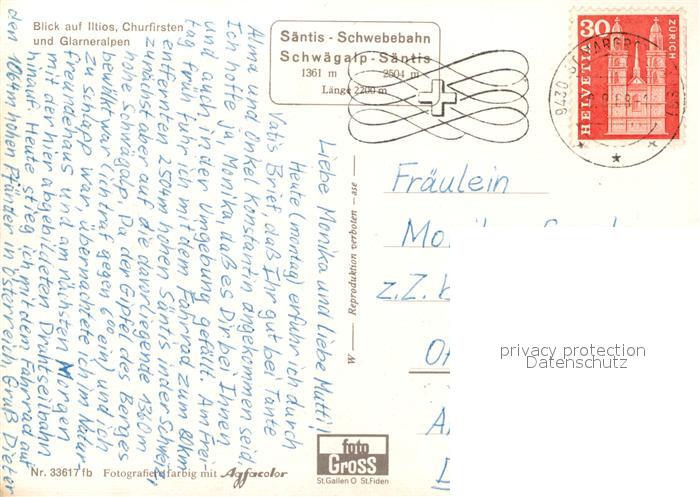 Blick auf Iltios, Churfirsten
und Glarneralpen
Säntis - Schwebebahn
Schwägalp - Säntis
1361 m 2504 m
Länge 2200 m
30
HELVETIA
ZÜRICH
9430 ST. MARGR
Liebe Monika und liebe Mutti!
Heute (montag) erfuhr ich durch
Vatis Brief, daß Ihr gut bei Tante
Alma und Onkel Konstantin angekommen seid.
Ich hoffe ja, Monika, daß es Dir bei Ihnen
und auch in der Umgebung gefällt. Am Frei-
tag früh fuhr ich mit dem Fahrrad zum 80km
entfernten 2504m hohen Säntis in der Schweiz,
zunächst aber auf die davorliegende 1360m
hohe Schwägalp. Da der Gipfel des Berges
bewölkt war (ich traf gegen 6⁰⁰ ein) und ich
zu schlapp war, übernachtete ich im Natur-
freundehaus und am nächsten Morgen
mit der hier abgebildeten Drahtseilbahn
hinauf. Heute stieg ich mit dem Fahrrad auf
den 1064m hohen Pfänder in Österreich. Gruß Dieter
W — Reproduktion verboten - ase —
Fräulein
z.Z.
privacy protection
Datenschutz
foto
GROSS
St.Gallen O St.Fiden
Nr. 33617 fb Fotografiert farbig mit Agfacolor